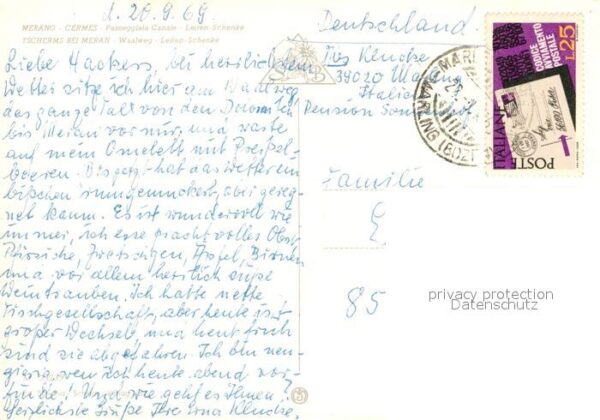 d. 20.9.69
MERANO - CERMES - Passeggiata Canale - Leiten-Schenke
TSCHERMS BEI MERAN - Waalweg - Leiten-Schenke
Liebe Hackers, bei herrlichem
Wetter sitze ich hier am Waalweg
das ganze Tal von den
bis Meran vor mir, und warte
auf mein Omelett mit Preißel-
beeren. Bis jetzt hat das Wetter ein
bißchen rumgemuckert, aber gereg-
net kaum. Es ist wundervoll wie
immer, ich esse prachtvolles Obst
Pfirsiche, Zwetschgen, Äpfel, Birnen
und vor allem herrlich süße
Weintrauben. Ich hatte nette
Tischgesellschaft, aber heute ist
großer Wechsel und heut früh
sind sie abgefahren. Ich bin neu-
gierig, wen ich heute abend vor-
finde! Und wie geht es Ihnen?
Herzlichste Grüße Ihre Irma Klencke.
Deutschland
Klencke
39020 Marling
Italien
Pension
Familie
85
MARLING (BOZ
POSTE ITALIANE
CODICE
AVVIAMENTO
POSTALE
L.25
privacy protection
Datenschutz